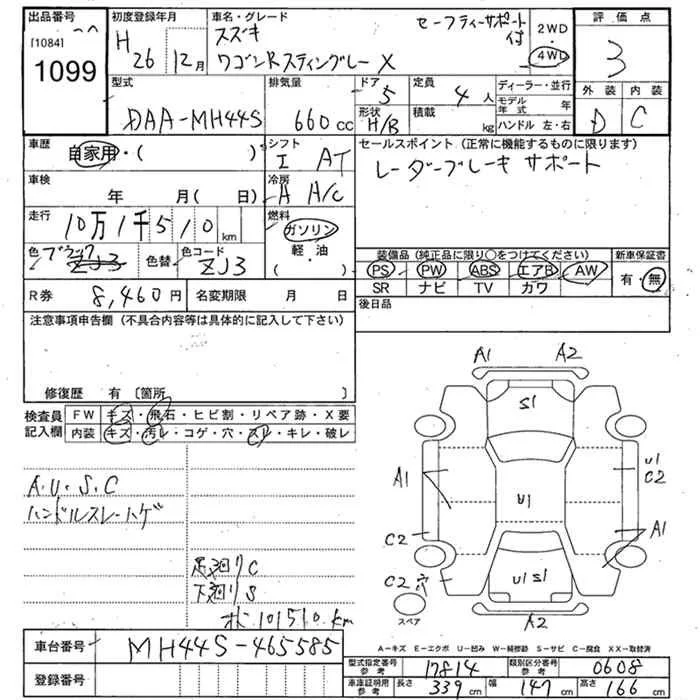 出品番号
[1084]
1099
初度登録年月
H 26 12月
車名・グレード
スズキ
ワゴンRスティングレー X
セーフティーサポート付
2WD
4WD
評価点
3
外装 内装
D C
型式
DAA-MH44S
排気量
660cc
ドア 5
形状 H/B
定員 4人
積載 kg
ディーラー・並行
モデル年式 年
ハンドル 左・右
車歴
自家用・( )
シフト
I AT
セールスポイント (正常に機能するものに限ります)
レーダーブレーキ サポート
車検
年 月( 日)
冷房
A A/C
走行
10万1千510km
燃料
ガソリン
軽・油
( )
色 ブラック
ZJ3
色替
色コード
ZJ3
装備品 (純正品に限り○をつけてください)
PS PW ABS エアB AW
SR ナビ TV カワ
新車保証書
有・無
R券 8,460円
名変期限 月 日
後日品
注意事項申告欄 (不具合内容等は具体的に記入して下さい)
修復歴 有 〔箇所 〕
検査員記入欄
FW キズ・飛石・ヒビ割・リペア跡・X要
内装 キズ・汚レ・コゲ・穴・スレ・キレ・破レ
A.U.S.C
ハンドルスレ・ハゲ
足廻りC
下廻りS
101510km
A1 A2
S1
A1
U1
U1
C2
C2
A1
C2穴
U1 S1
A2
スペア
A－キズ E－エクボ U－凹み W－補修跡 S－サビ C－腐食 XX－取替済
車台番号 MH44S-465585
登録番号
型式指定番号 参考 17814
類別区分番号 参考 0608
車庫証明用 参考 長さ 339cm 幅 147cm 高さ 166cm